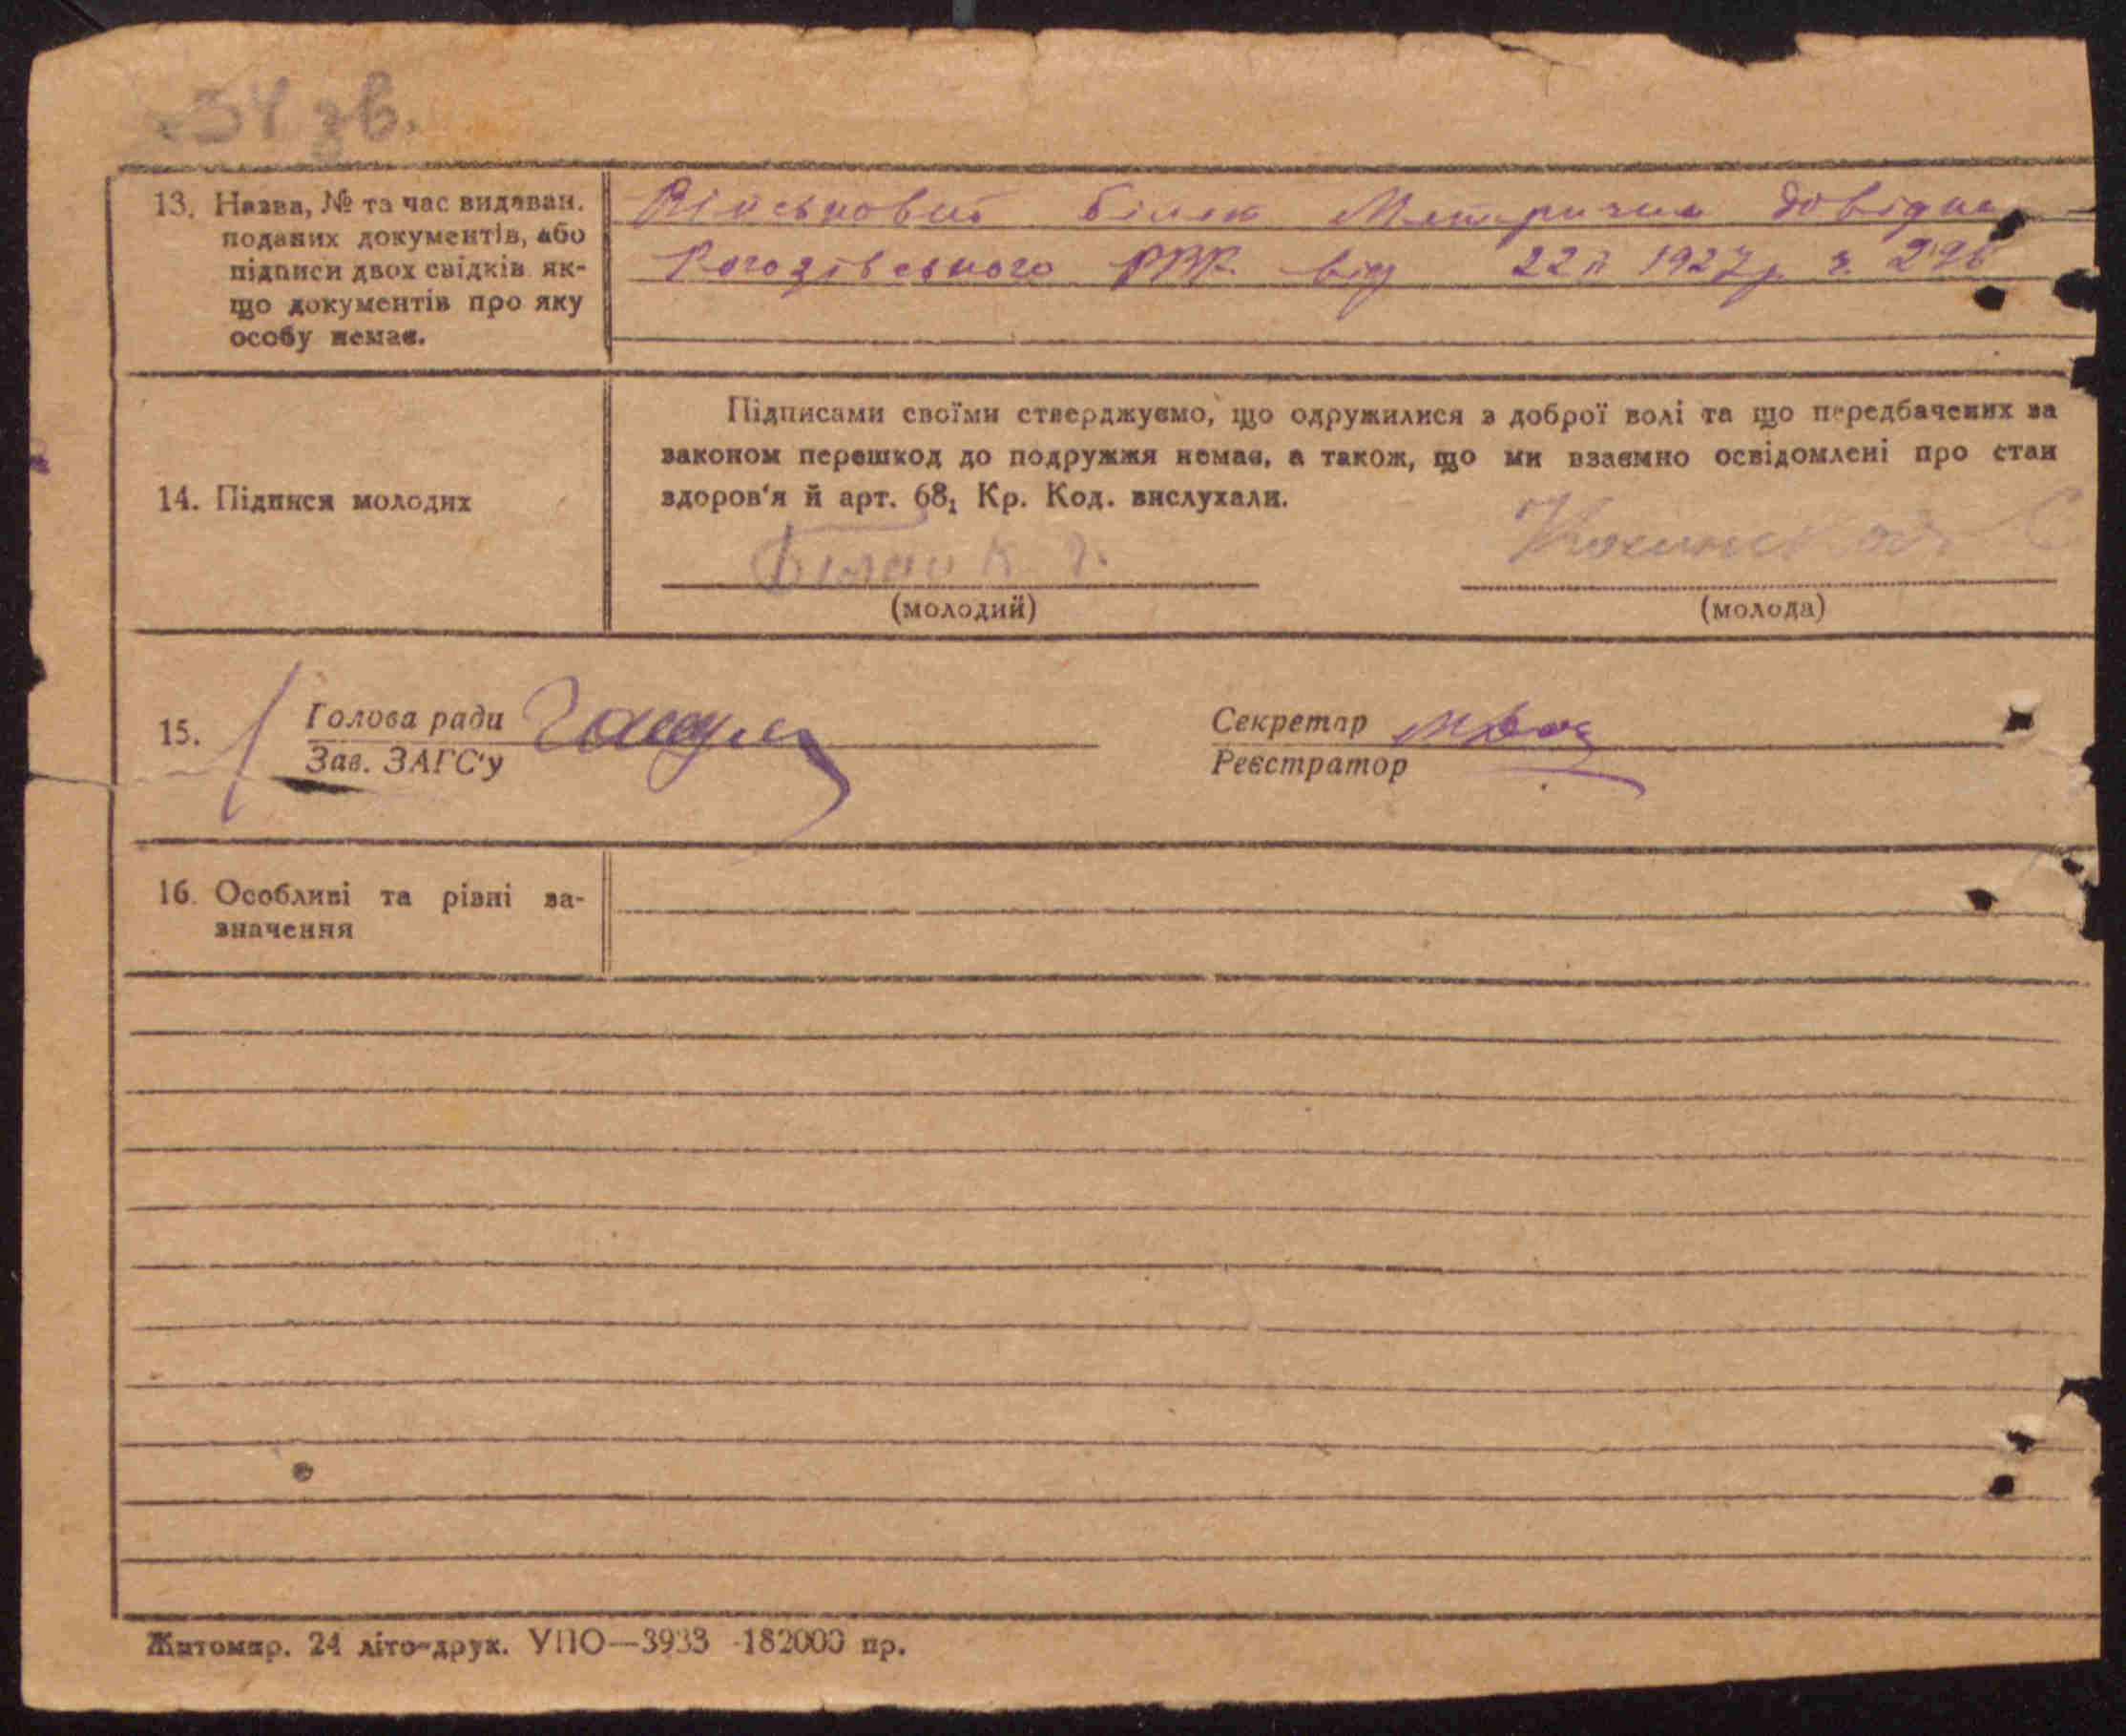 34 зв.
13. Назва, № та час видаван. поданих документів, або підписи двох свідків як-що документів про яку особу немає.
Військовий білет Метрична довідка
Рогозівського РВК від 22 II 1927 р. ч. 296
14. Підписи молодих
Підписами своїми стверджуємо, що одружилися з доброї волі та що передбачених за
законом перешкод до подружжя немає, а також, що ми взаємно освідомлені про стан
здоров'я й арт. 68₁ Кр. Код. вислухали.
(молодий)
(молода)
15. Голова ради
Зав. ЗАГС'у
Секретар
Реєстратор
16. Особливі та рівні за-
значення
Житомир. 24 літо-друк. УПО—3933 -182000 пр.